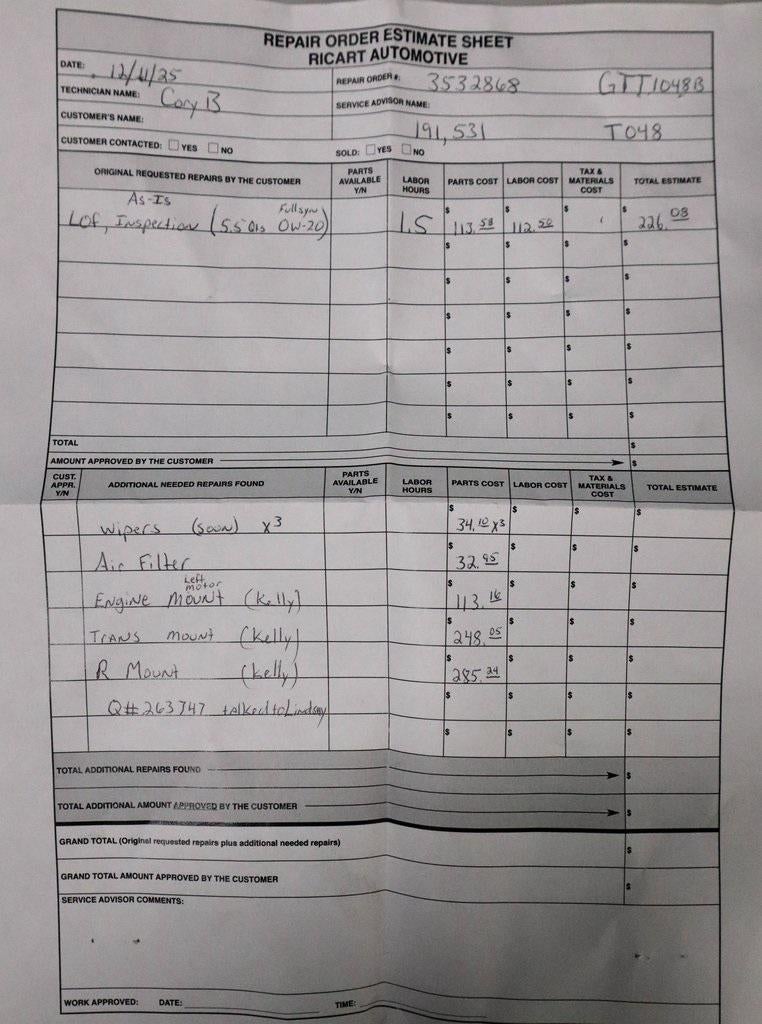 REPAIR ORDER ESTIMATE SHEET
RICART AUTOMOTIVE
DATE: 12/11/25
REPAIR ORDER #: 3532868 GTT1048B
TECHNICIAN NAME: Cory B
SERVICE ADVISOR NAME:
CUSTOMER'S NAME:
191,531 T048
CUSTOMER CONTACTED: ☐ YES ☐ NO
SOLD: ☐ YES ☐ NO
ORIGINAL REQUESTED REPAIRS BY THE CUSTOMER PARTS AVAILABLE Y/N LABOR HOURS PARTS COST LABOR COST TAX & MATERIALS COST TOTAL ESTIMATE
As-Is
LOF, Inspection (5.5 Qts Full syn 0W-20) 1.5 $113.58 $112.50 $ $226.08
$ $ $ $
$ $ $ $
$ $ $ $
$ $ $ $
$ $ $ $
$ $ $ $
TOTAL $
AMOUNT APPROVED BY THE CUSTOMER $
CUST. APPR. Y/N ADDITIONAL NEEDED REPAIRS FOUND PARTS AVAILABLE Y/N LABOR HOURS PARTS COST LABOR COST TAX & MATERIALS COST TOTAL ESTIMATE
Wipers (soon) x3 $34.10 x3 $ $ $
Air Filter $32.95 $ $ $
Left motor
Engine Mount (Kelly) $113.16 $ $ $
Trans mount (Kelly) $248.05 $ $ $
R Mount (Kelly) $285.24 $ $ $
Q# 263747 talked to Lindsay $ $ $ $
$ $ $ $
TOTAL ADDITIONAL REPAIRS FOUND $
TOTAL ADDITIONAL AMOUNT APPROVED BY THE CUSTOMER $
GRAND TOTAL (Original requested repairs plus additional needed repairs) $
GRAND TOTAL AMOUNT APPROVED BY THE CUSTOMER $
SERVICE ADVISOR COMMENTS:
WORK APPROVED: DATE: TIME: